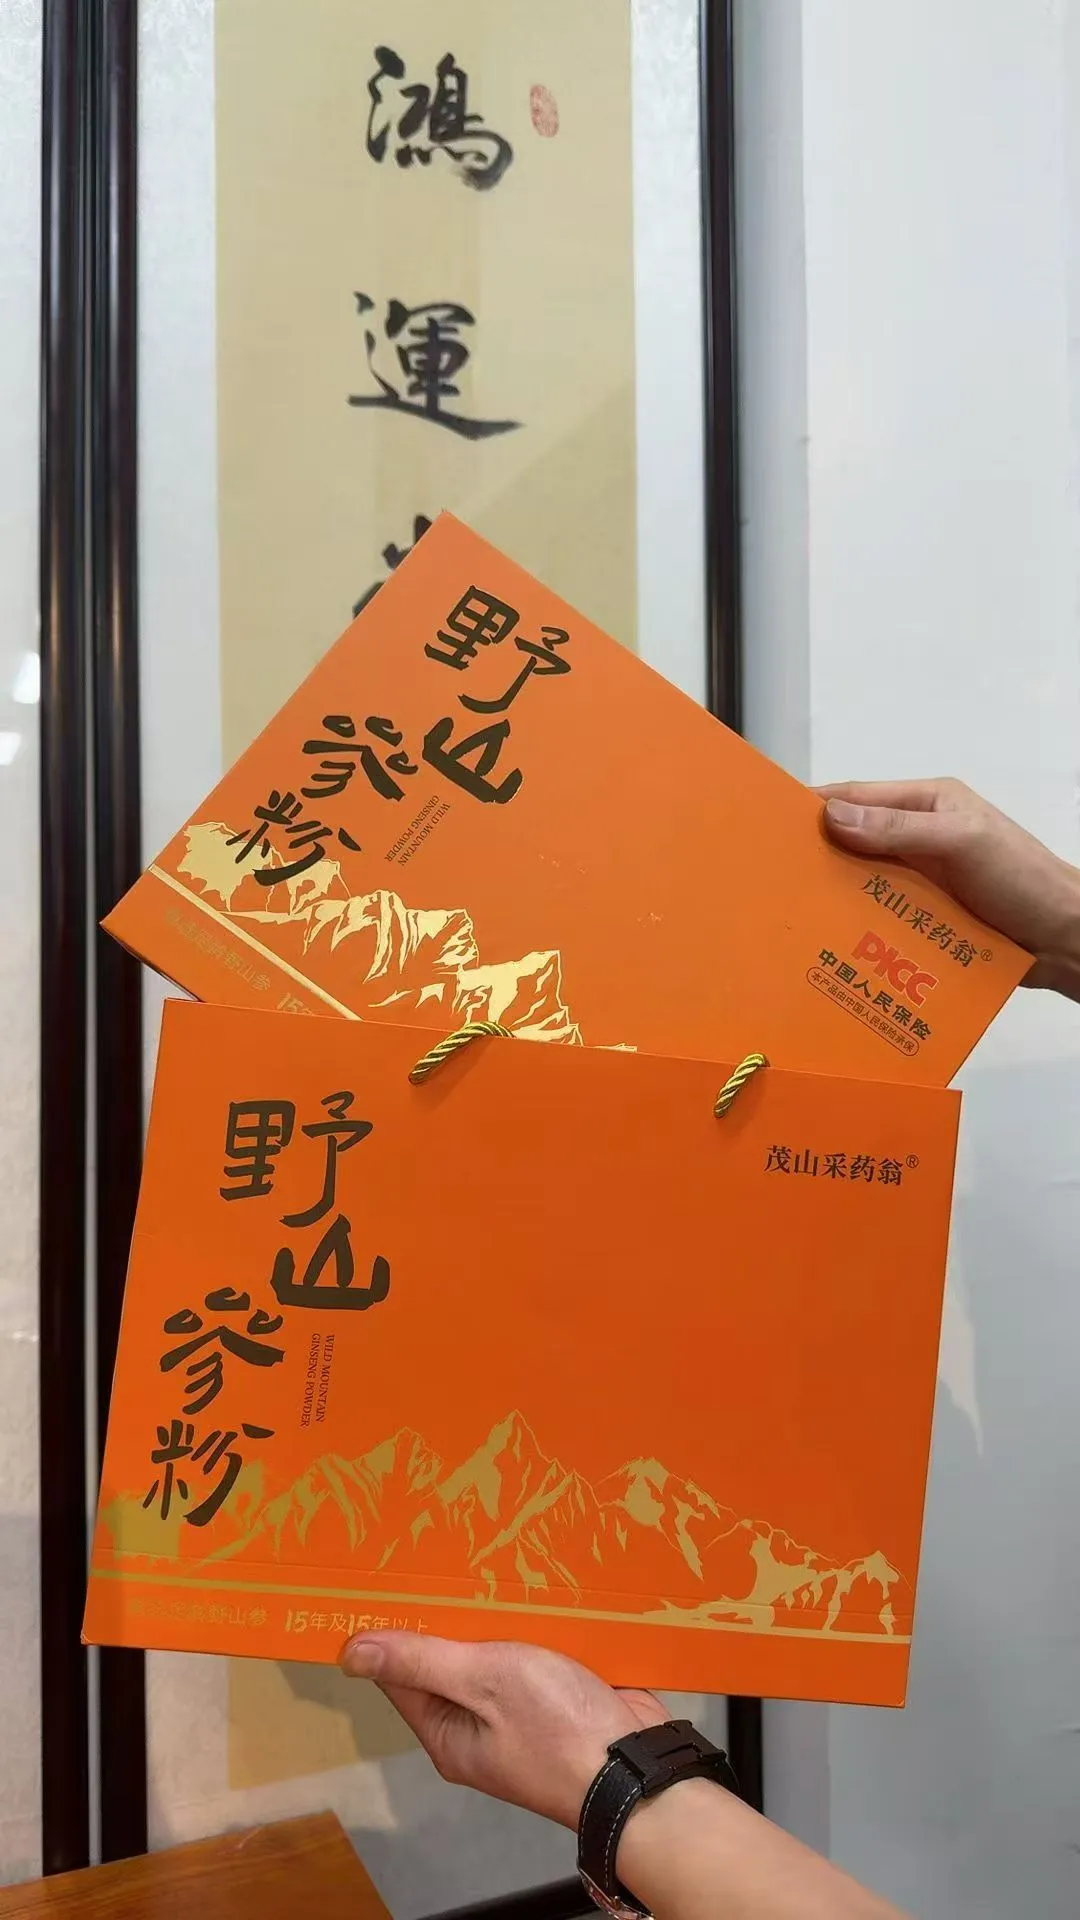 鴻
運
野山
參粉
WILD MOUNTAIN
GINSENG POWDER
野山參
15年
茂山采药翁®
PICC
中国人民保险
本产品由中国人民保险承保
野山
參粉
WILD MOUNTAIN
GINSENG POWDER
茂山采药翁®
野山参 15年及15年以上